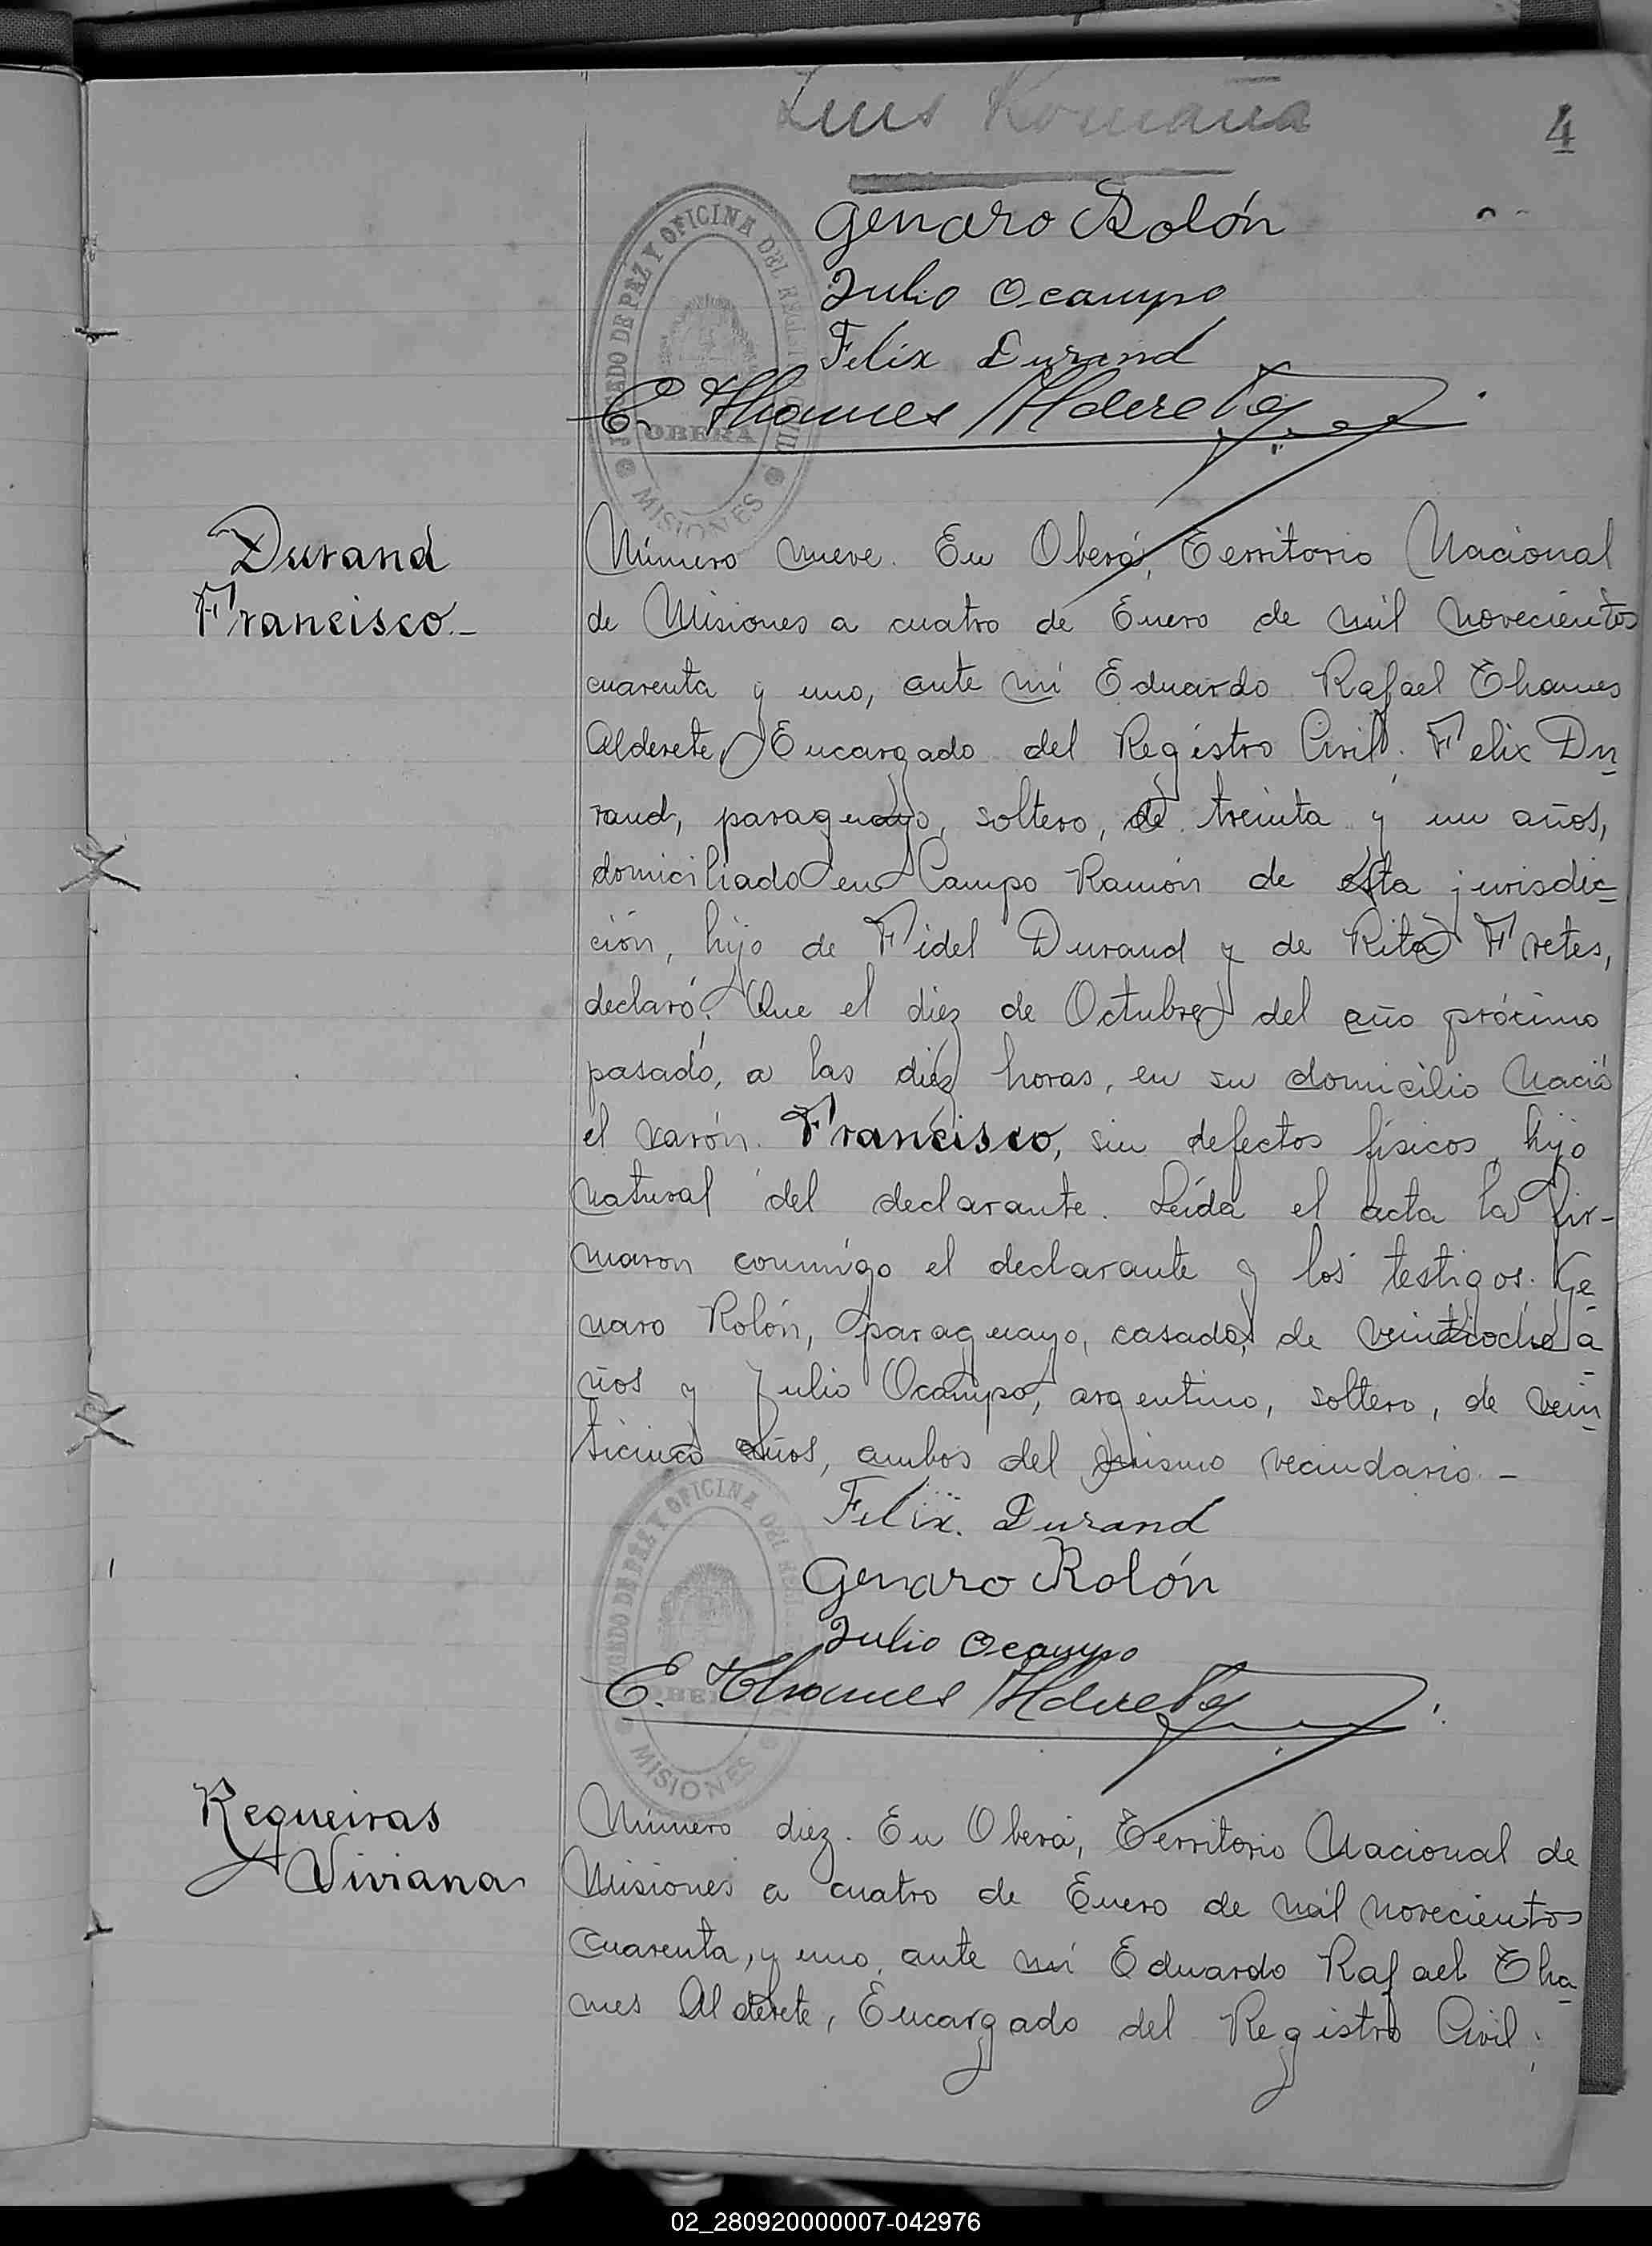 Luis Romaña
4
Genaro Rolón
Julio Ocampo
Felix Durand
E. Thames Alderete
JUZGADO DE PAZ Y OFICINA DEL REGISTRO CIVIL
OBERA
MISIONES
Durand
Francisco.-
Número nueve. En Oberá, Territorio Nacional
de Misiones a cuatro de Enero de mil novecientos
cuarenta y uno, ante mi Eduardo Rafael Thames
Alderete, Encargado del Registro Civil: Felix Du
rand, paraguayo, soltero, de treinta y un años,
domiciliado en Campo Ramón de esta jurisdic
ción, hijo de Fidel Durand y de Rita Fretes,
declaró: Que el diez de Octubre del año próximo
pasado, a las diez horas, en su domicilio nació
el varón: Francisco, sin defectos físicos, hijo
natural del declarante. Leída el acta la fir-
maron conmigo el declarante y los testigos: Ge
naro Rolón, paraguayo, casado, de veintiocho a
ños y Julio Ocampo, argentino, soltero, de vein
ticinco años, ambos del mismo vecindario.-
Felix. Durand
Genaro Rolón
Julio Ocampo
E. Thames Alderete
JUZGADO DE PAZ Y OFICINA DEL
OBERA
MISIONES
Requeiras
Viviana
Número diez. En Oberá, Territorio Nacional de
Misiones a cuatro de Enero de mil novecientos
cuarenta, y uno, ante mi Eduardo Rafael Tha
mes Alderete, Encargado del Registro Civil:
02_280920000007-042976